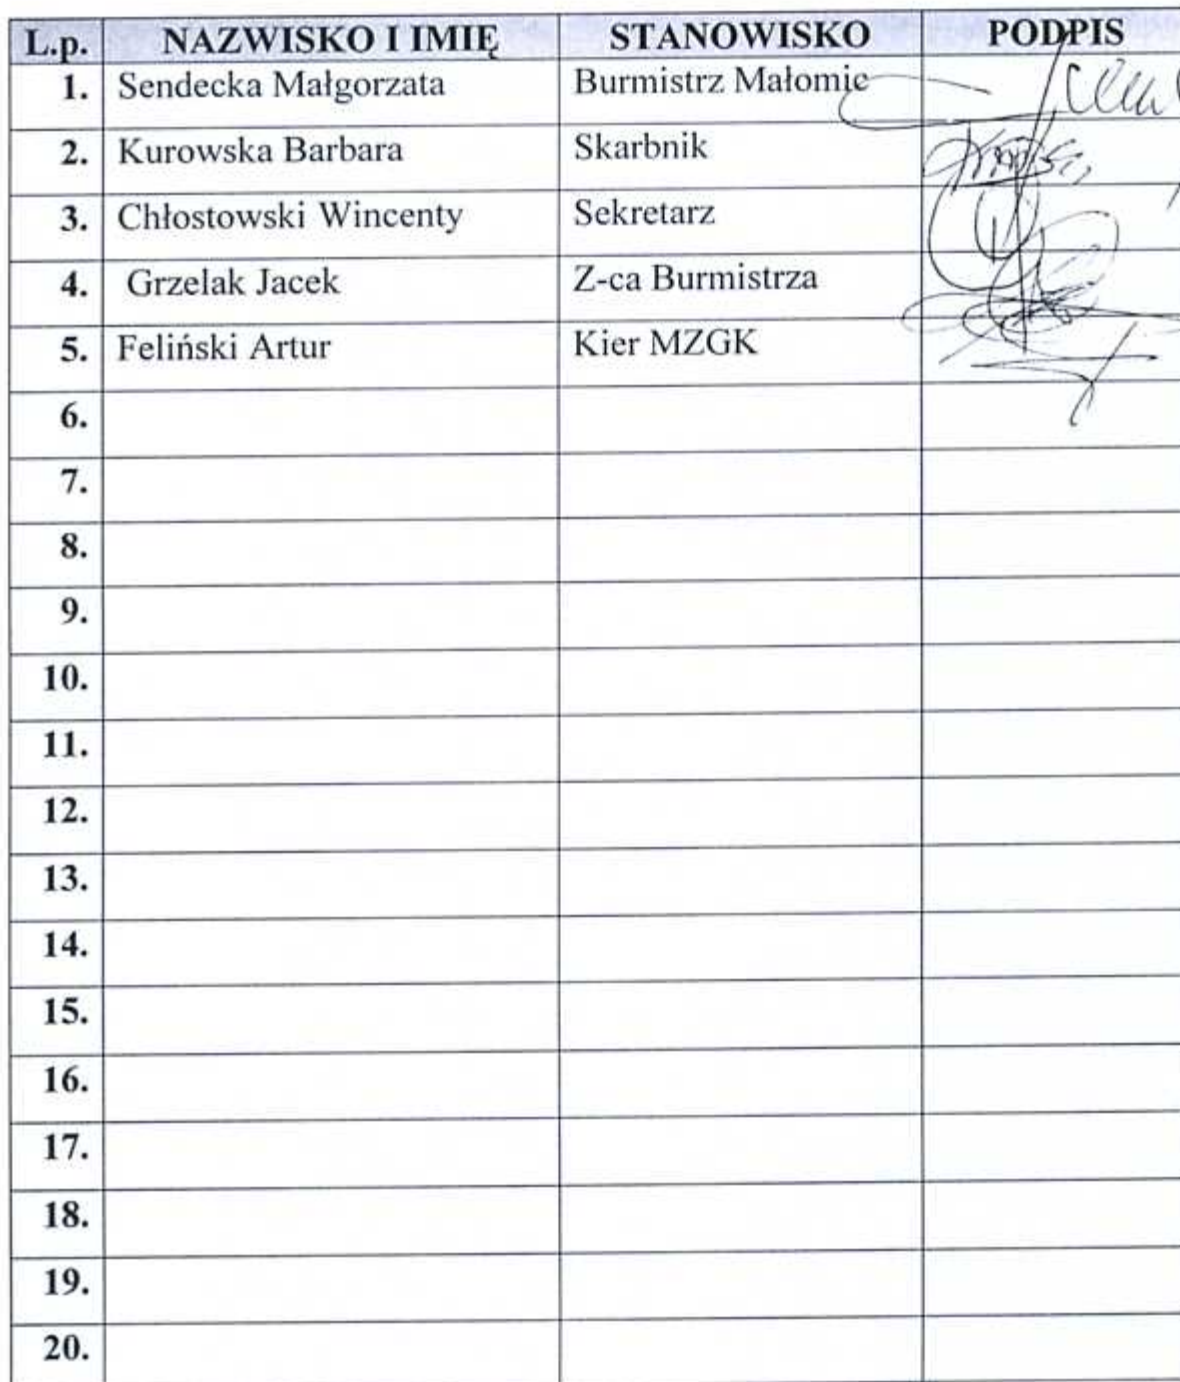 L.p. NAZWISKO I IMIĘ STANOWISKO PODPIS
1. Sendecka Małgorzata Burmistrz Małomic
2. Kurowska Barbara Skarbnik
3. Chłostowski Wincenty Sekretarz
4. Grzelak Jacek Z-ca Burmistrza
5. Feliński Artur Kier MZGK
6.
7.
8.
9.
10.
11.
12.
13.
14.
15.
16.
17.
18.
19.
20.